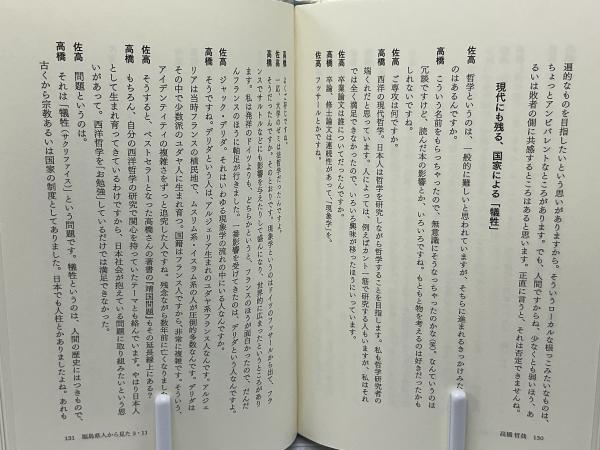 遍的なものを目指したいという思いがありますから。そういうローカルな根っこみたいなものは、
ちょっとアンビバレントなところがあります。でも、人間ですからね、少なくとも弱いほう、あ
るいは敗者の側に共感するところはあると思います。正直に言うと、それは否定できませんね。
現代にも残る、国家による「犠牲」
佐高 哲学というのは、一般的に難しいと思われていますが、そちらに進まれるきっかけみた
のはあるんですか。
高橋 こういう名前をもらっちゃったので、無意識にそうなっちゃったのかな(笑)。なんていうのは
冗談ですけど、読んだ本の影響とか、いろいろですね。もともと物を考えるのは好きだったかも
しれないです。
佐高 ご専攻は何ですか。
高橋 西洋の現代哲学。日本人は哲学を研究しながら哲学することを目指します。私も哲学研究者の
端くれだと思っています。人によっては、例えばカント一筋で研究する人もいますが、私はそれ
では全く満足できなかったので、いろいろ興味が移ったほうにいっています。
佐高 卒業論文は誰についてだったんですか。
高橋 卒論、修士論文は連続性があって、「現象学」を。
佐高 フッサールとかですね。
高橋 そうだったんですか。そのとおりです。現象学というのはドイツのフッサールから出て、フラ
ンスでサルトルなどにも影響を与えたりして盛んになり、世界的に広まったというところがあり
ます。私は発祥のドイツよりも、どちらかというと、フランスのほうが面白かったので、だんだ
んフランスのほうに軸足が行きました。一番影響を受けてきたのは、デリダという人なんですよ。
佐高 ジャック・デリダ。それはいわゆる現象学の流れの中にいる人なんですか。
高橋 そうですね。デリダという人は、アルジェリア生まれのユダヤ系フランス人なんです。アルジェ
リアは当時フランスの植民地で、ムスリム系・イスラム系の人が圧倒的多数なんです。デリダは
その中で少数派のユダヤ人に生まれ育つ。国籍はフランス人ですから、非常に複雑です。そういう、
アイデンティティの複雑さをずっと追究した人ですね。残念ながら数年前に亡くなりました
佐高 そうすると、ベストセラーとなった高橋さんの著書の『靖国問題』もその延長線上にある?
高橋 もちろん、自分の西洋哲学の研究で関心を持っていたテーマとも絡んでいます。やはり日本人
として生まれ育ってきているわけですから、日本社会が抱えている問題に取り組みたいという思
いがあって。西洋哲学を「お勉強」しているだけでは満足できなかった。
佐高 問題というのは。
高橋 それは「犠牲(サクリファイス)」という問題です。犠牲というのは、人間の歴史にはつきもので、
古くから宗教あるいは国家の制度としてありました。日本でも人柱とかありましたよね。あれも
高橋 哲哉 130
131 福島県人から見た3・11